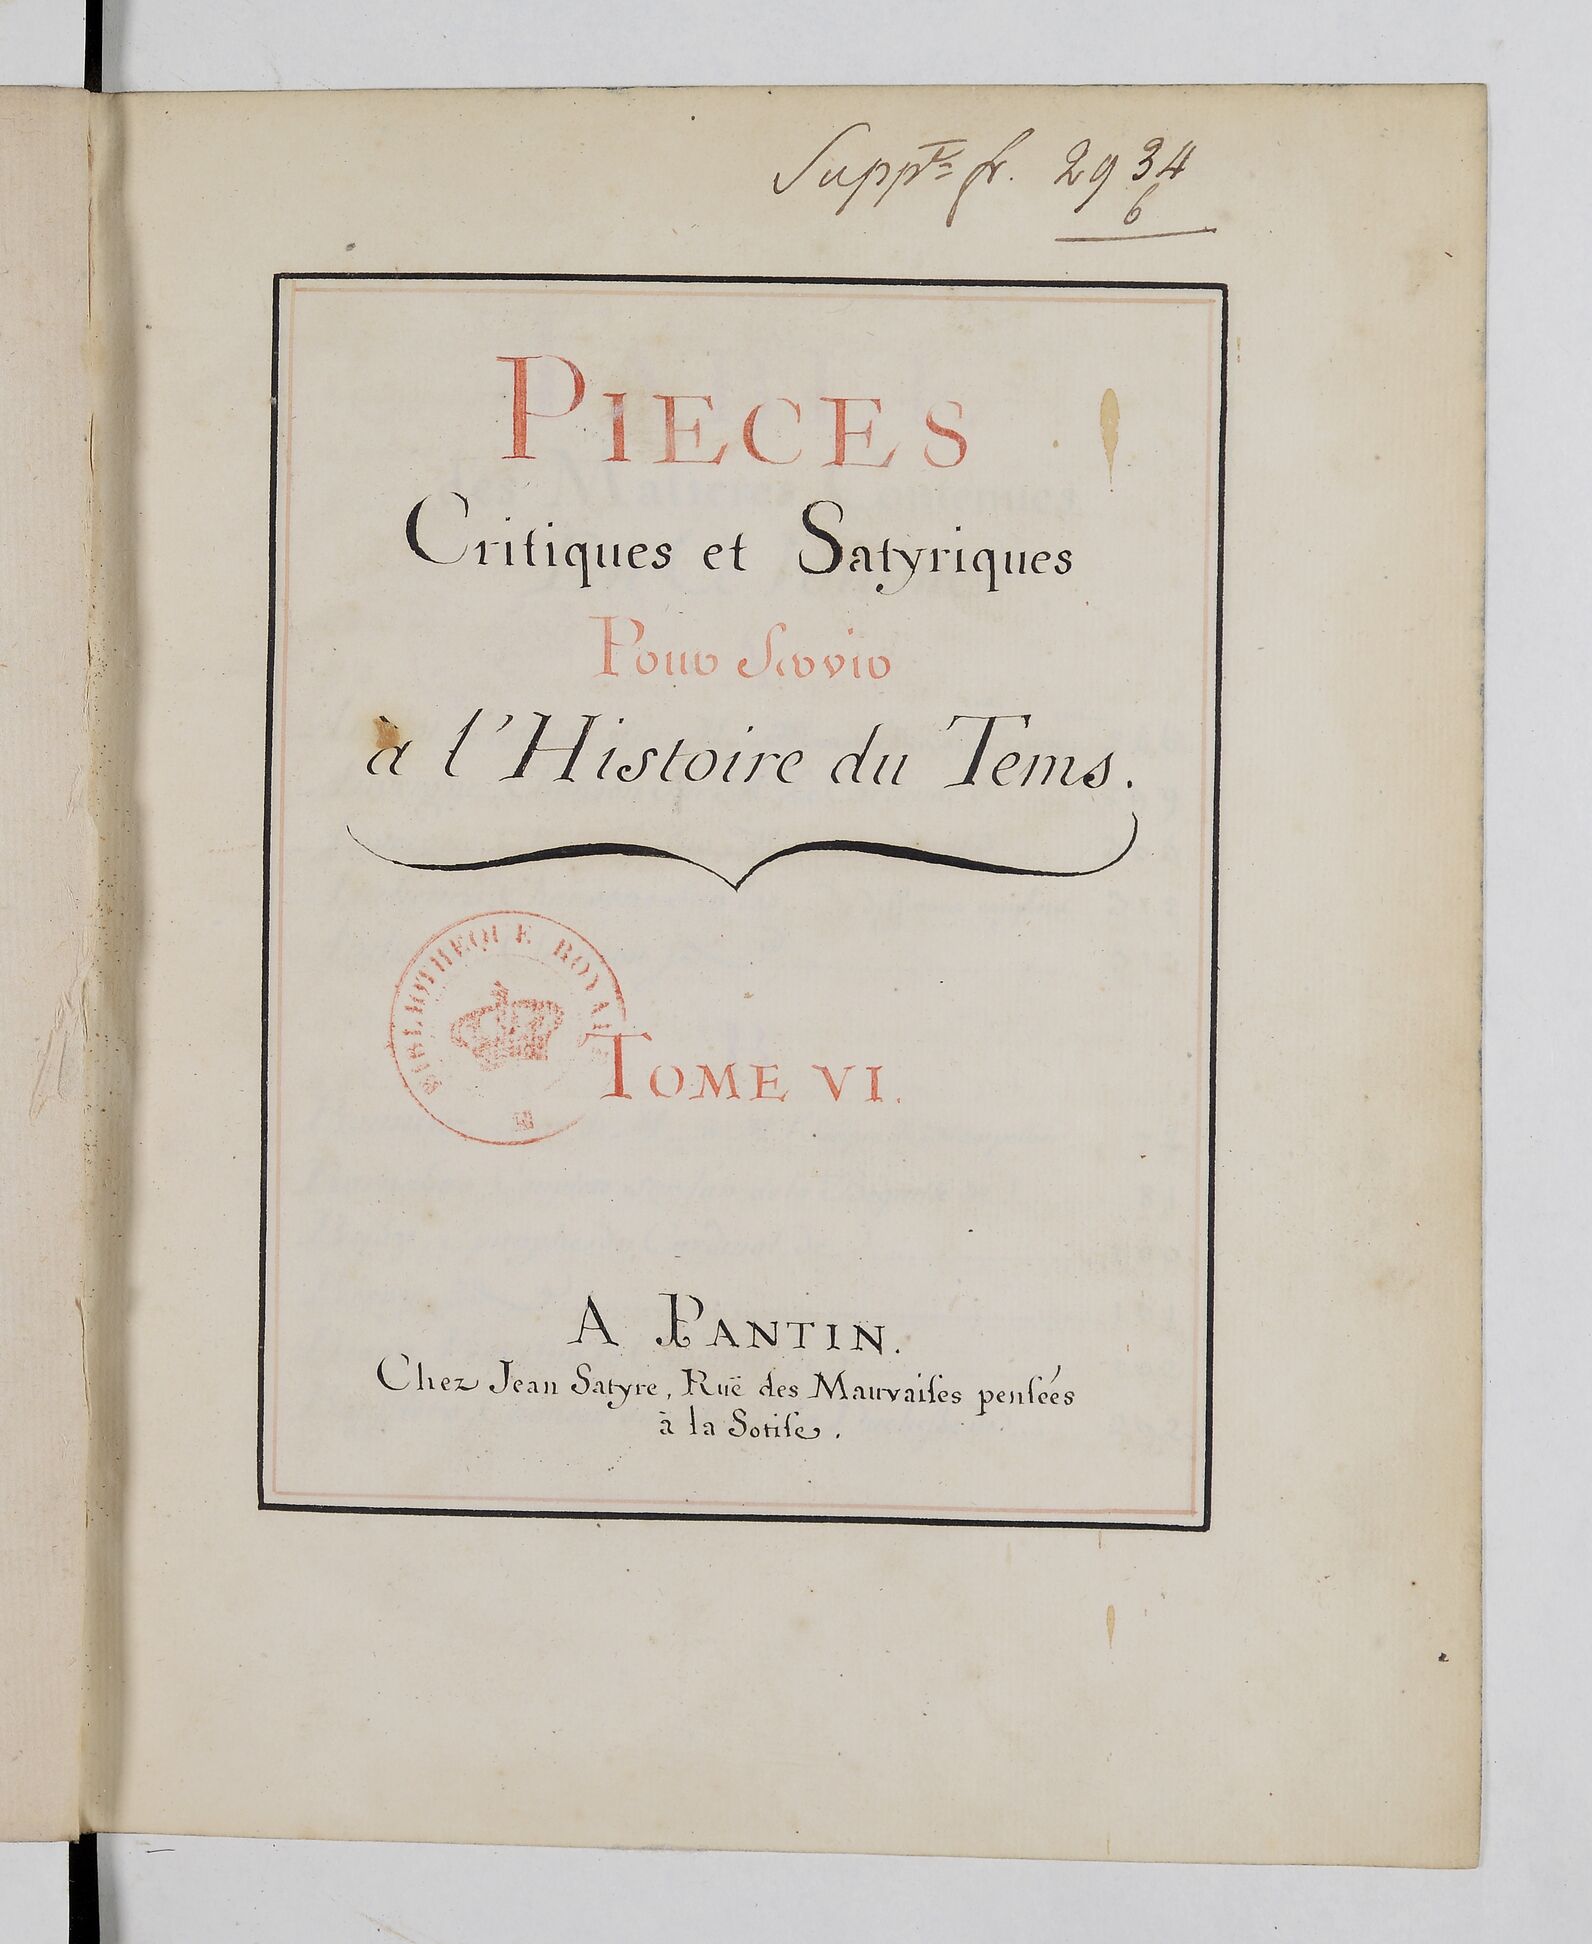 Suppt fr. 2934
6
PIECES
Critiques et Satyriques
Pour Servir
à l'Histoire du Tems.
BIBLIOTHEQUE ROYALE
TOME VI.
A PANTIN.
Chez Jean Satyre, Ruë des Mauvaiſes penſées
à la Sotiſe.